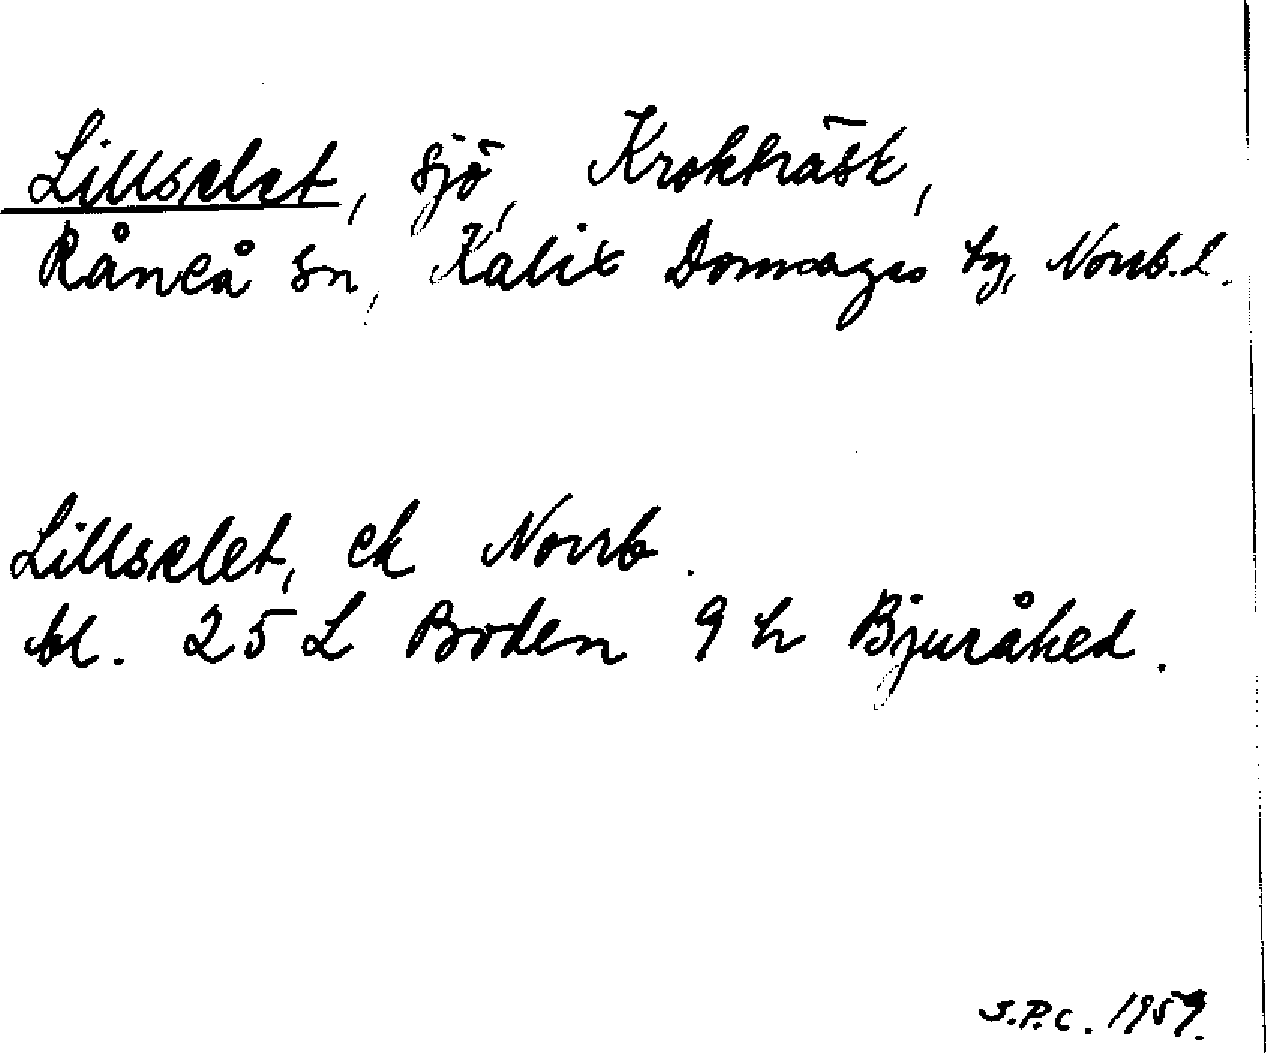 Lillselet, sjö, Krokträsk,
Råneå sn, Kalix Domsagas tg, Norrb. L.
Lillselet, ek Norrb.
bl. 25 L Boden 9 h Bjuråhed.
S.P.C. 1959.